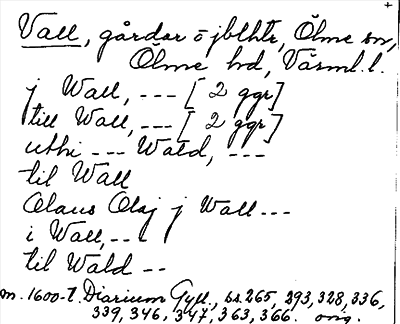 Vall, gårdar o jblhtr, Ölme sn,
Ölme hd, Värml. l.
j Wall, --- [2 ggr]
till Wall, --- [2 ggr]
uthi --- Wald, ---
til Wall
Olaus Olaj j Wall ---
i Wall, ---
til Wald --
m. 1600-t. Diarium Gyll., ss. 265, 293, 328, 336,
339, 346, 347, 363, 366. orig.